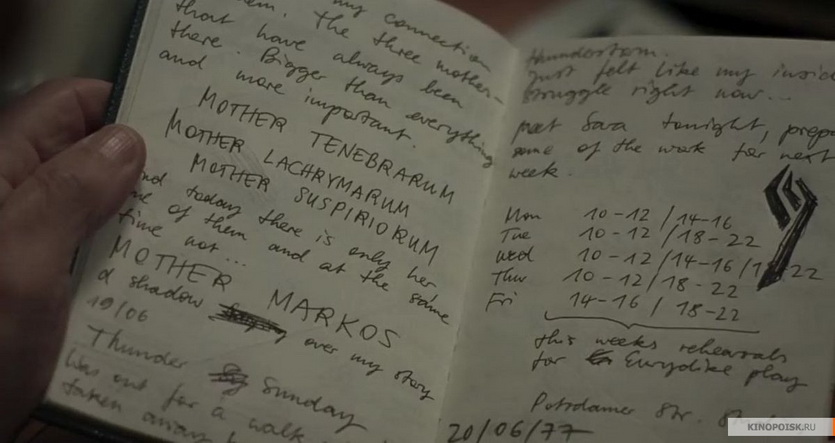 my connection
them. The three mother-
that have always been
there. Bigger than everything
and more important.
MOTHER TENEBRARUM
MOTHER LACHRYMARUM
MOTHER SUSPIRIORUM
and today there is only her
one of them and at the same
time not...
MOTHER MARKOS
a shadow over my story
19/06
Thunder Sunday
Was out for a walk
taken away
thunderstorm.
Just felt like my inside
struggle right now...
met Sara tonight, prepare
some of the work for next
week.
Mon 10-12 / 14-16
Tue 10-12 / 18-22
Wed 10-12 / 14-16 / 22
Thur 10-12 / 18-22
Fri 14-16 / 18-22
this weeks rehearsals
for Eurydike play
Potsdamer Str.
20/06/77
KINOPOISK.RU